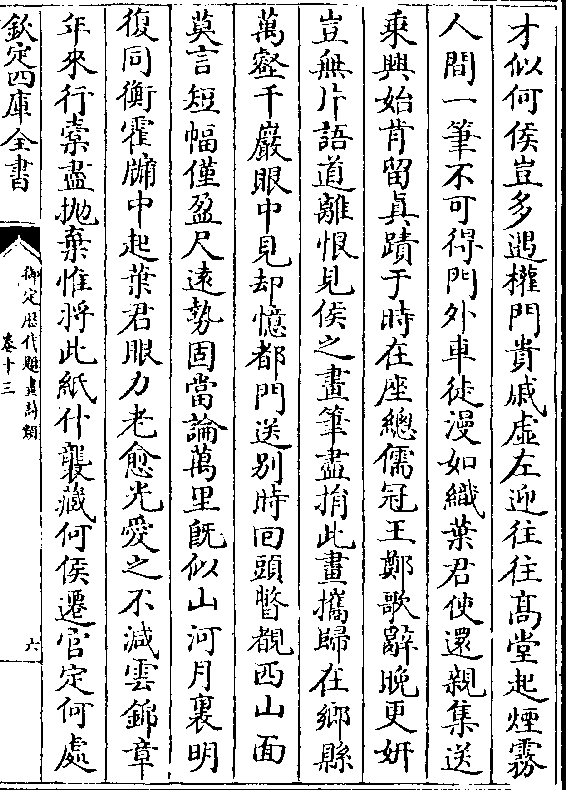 才似何侯豈多遇權門貴戚虛左迎往往髙堂起煙霧
人間一筆不可得門外車徒漫如織葉君使還親集送
乘興始肯留真蹟于時在座總儒冠王鄭歌辭晚更妍
豈無片語道離恨見侯之畫筆盡捐此畫攜歸在鄉縣
萬壑千巖眼中見却憶都門送别時回頭瞥覩西山面
莫言短幅僅盈尺逺勢固當論萬里既似山河月裏明
復同衡霍牖中起葉君眼力老愈光愛之不減雲錦章
年來行橐盡抛棄惟將此紙什襲藏何侯遷官定何處
欽定四庫全書
御定歴代題畫詩類
卷十三
六